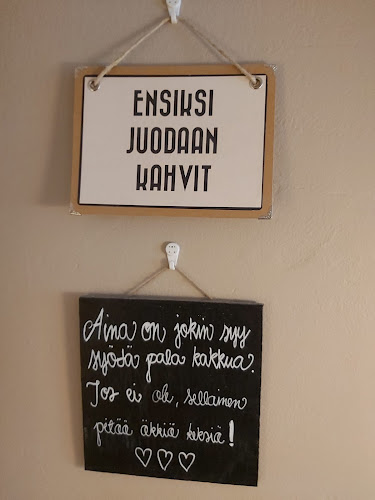 ENSIKSI
JUODAAN
KAHVIT
Aina on jokin syy
syödä pala kakkua.
Jos ei ole, sellainen
pitää äkkiä keksiä!